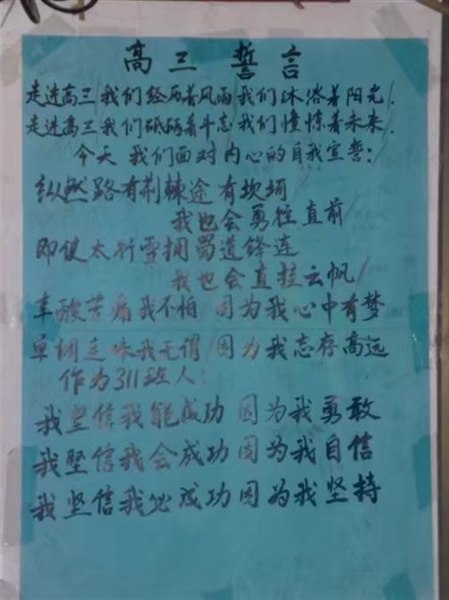 高三 誓言
走进高三 我们经历着风雨 我们沐浴着阳光!
走进高三 我们砥砺着斗志 我们憧憬着未来!
今天 我们面对内心的自我宣誓:
纵然路有荆棘途有坎坷
我也会勇往直前
即使太行雪拥蜀道锋连
我也会直挂云帆!
辛酸苦痛我不怕 因为我心中有梦
单调乏味我无谓 因为我志存高远
作为311班人:
我坚信我能成功 因为我勇敢
我坚信我会成功 因为我自信
我坚信我必成功 因为我坚持